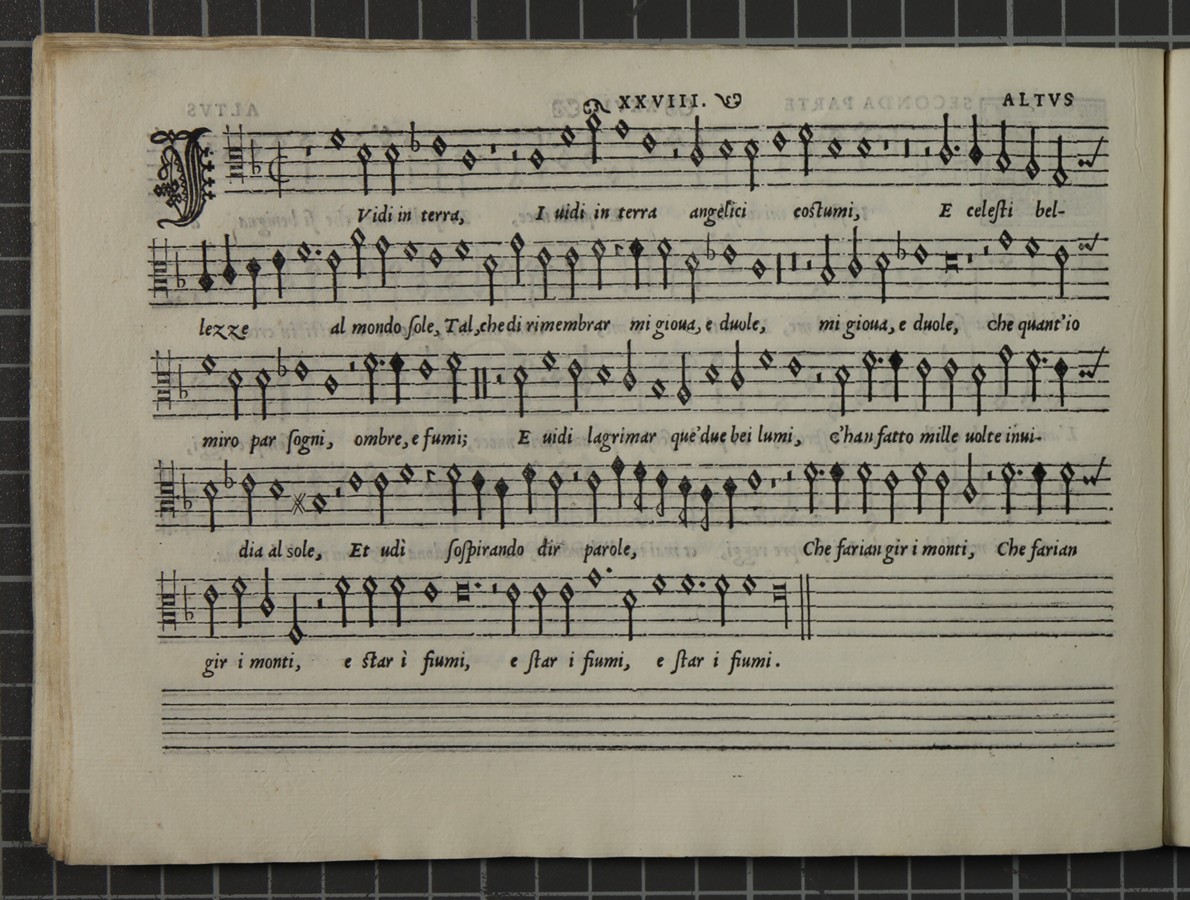 XXVIII. ALTVS
I Vidi in terra, I uidi in terra angelici costumi, E celesti bel-
lezze al mondo sole, Tal, che di rimembrar mi gioua, e duole, mi gioua, e duole, che quant'io
miro par sogni, ombre, e fumi; E uidi lagrimar que' due bei lumi, c'han fatto mille uolte inui-
dia al sole, Et udi sospirando dir parole, Che farian gir i monti, Che farian
gir i monti, e star i fiumi, e star i fiumi, e star i fiumi.